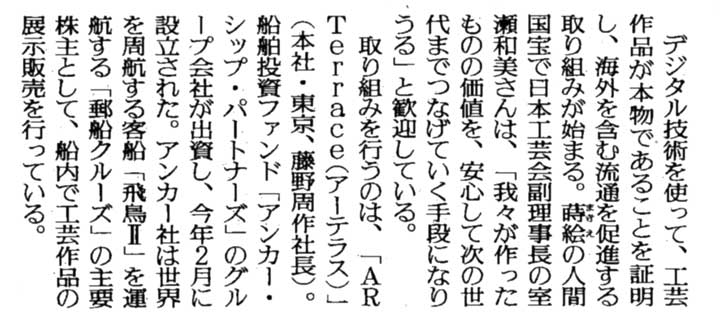 デジタル技術を使って、工芸
作品が本物であることを証明
し、海外を含む流通を促進する
取り組みが始まる。蒔絵の人間
国宝で日本工芸会副理事長の室
瀬和美さんは、「我々が作った
ものの価値を、安心して次の世
代までつなげていく手段になり
うる」と歓迎している。
　取り組みを行うのは、「AR
Terrace(アーテラス)」
(本社・東京、藤野周作社長)。
船舶投資ファンド「アンカー・
シップ・パートナーズ」のグル
ープ会社が出資し、今年2月に
設立された。アンカー社は世界
を周航する客船「飛鳥Ⅱ」を運
航する「郵船クルーズ」の主要
株主として、船内で工芸作品の
展示販売を行っている。